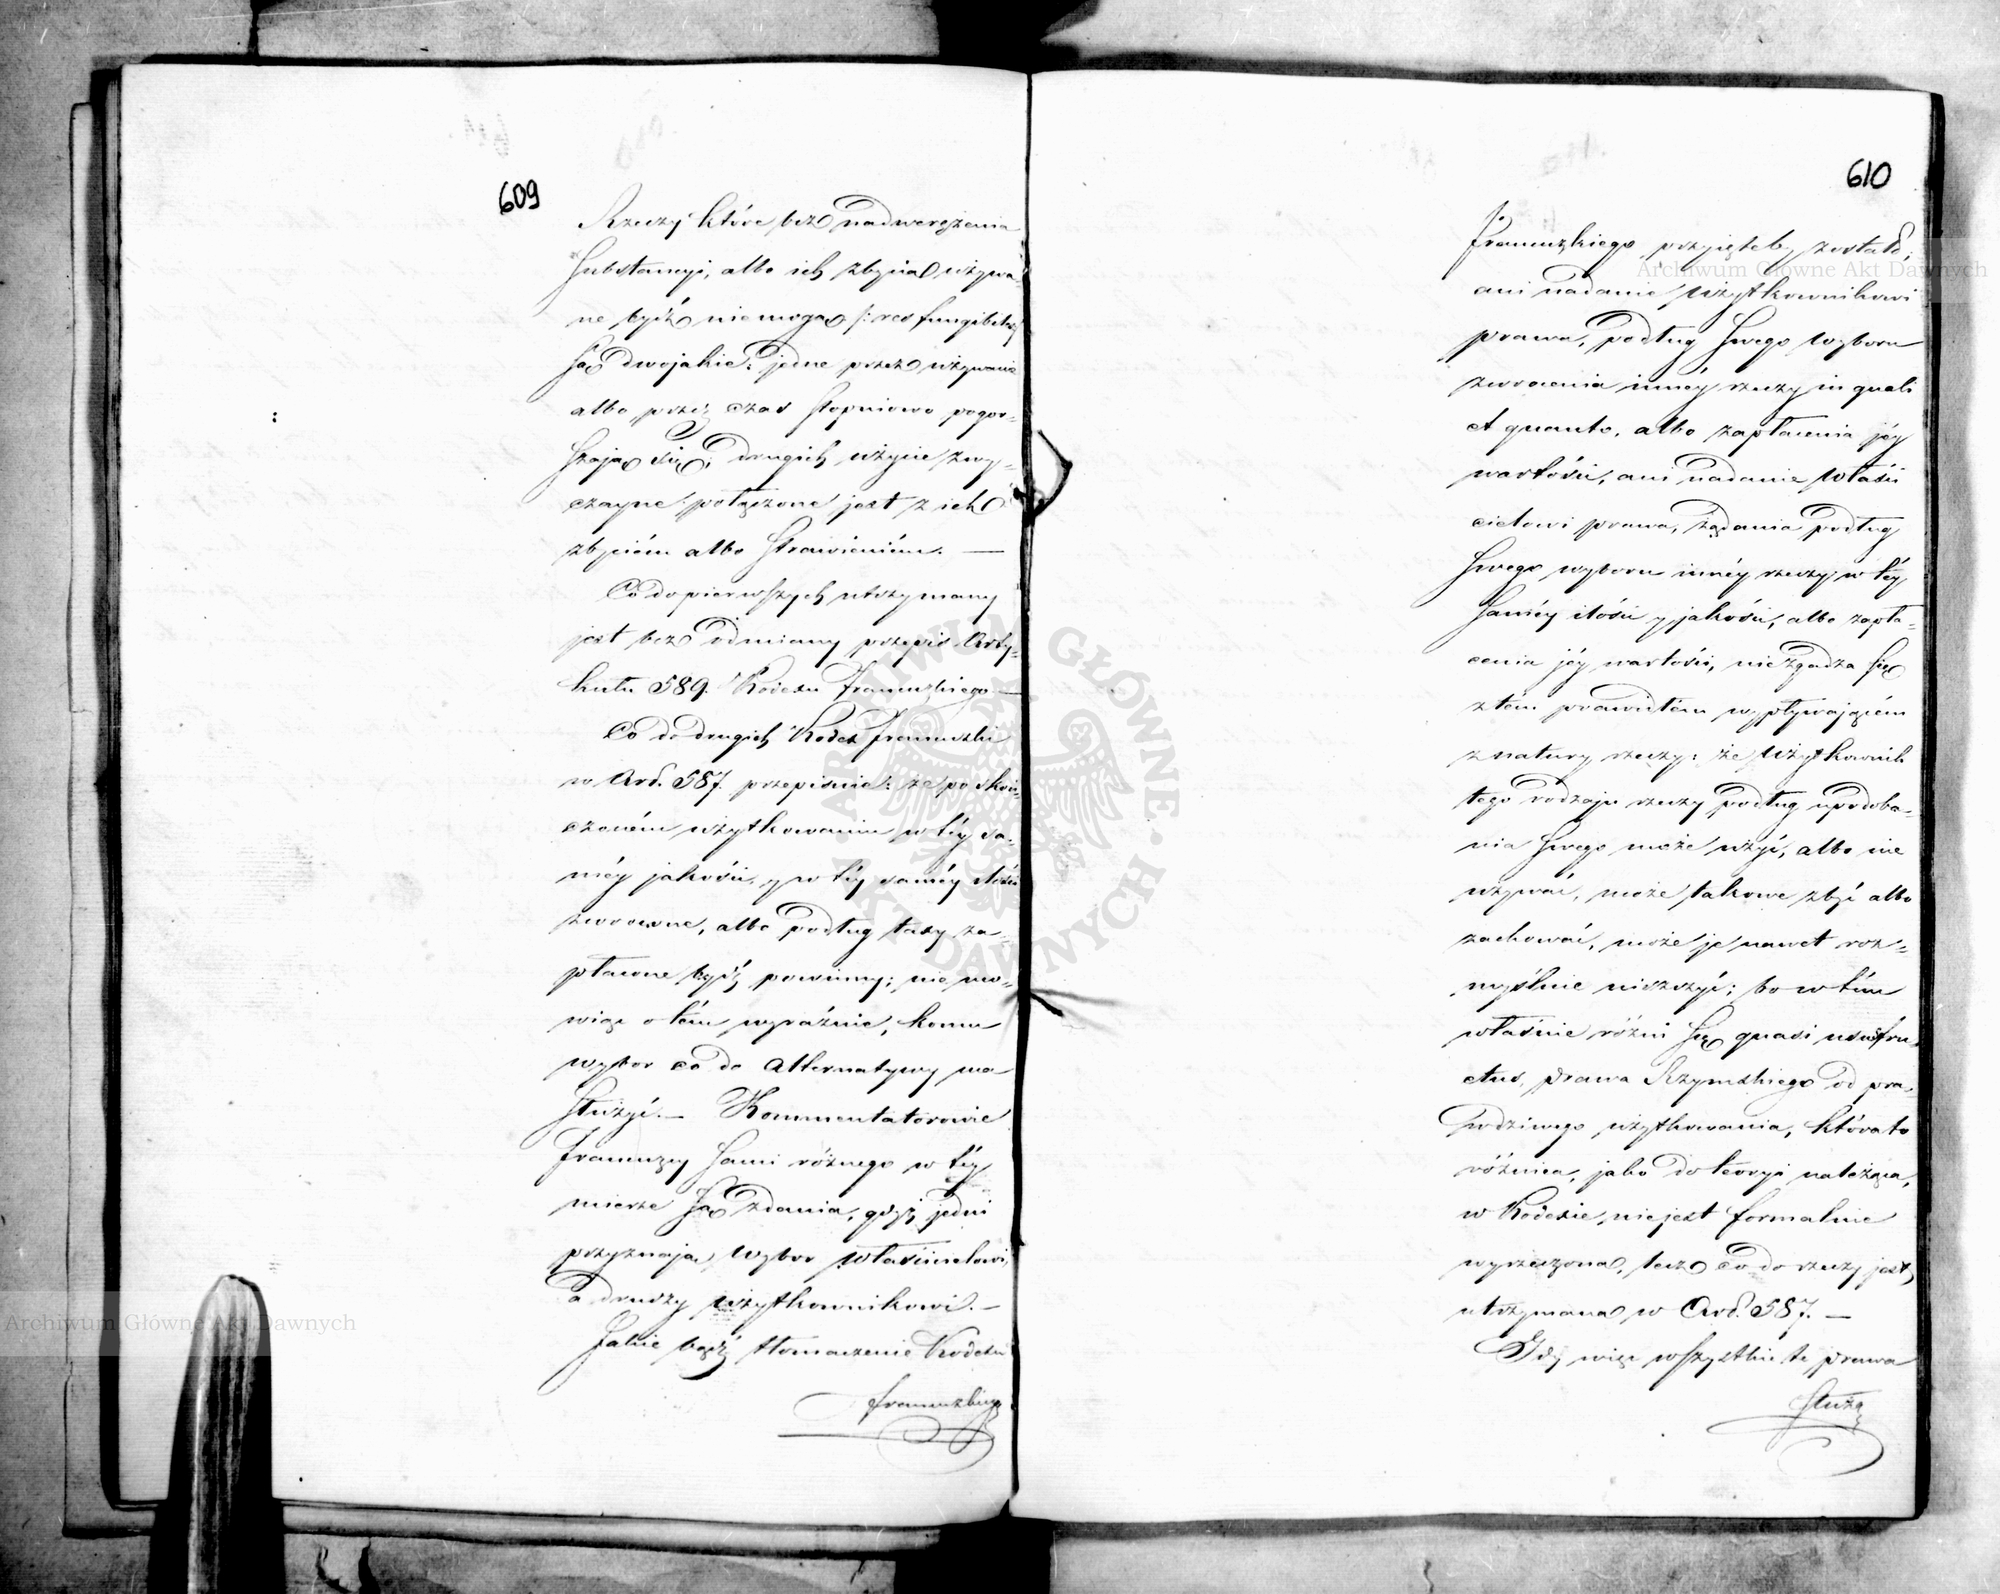 609
Rzeczy które bez nadwerężenia
Substancyi, albo ich zbycia używa-
ne bydź nie mogą /: res fungibiles
Są dwojakie: jedne przez używanie
albo przez czas stopniowo pogor-
szają się; drugich użycie zwy-
czayne połączone jest z ich
zbyciem albo strawieniem. —
Co do pierwszych utrzymany
jest bez odmiany przepis Arty-
kułu 589. Kodexu francuzkiego —
Co do drugich Kodex francuzki
w Art. 587. przepisuie: że po skoń-
czoném użytkowaniu w téy sa-
méy jakości, y w téy saméy ilości
zwrócone, albo podług taxy za-
płacone bydź powinny; nie mó-
wiąc o tém wyraźnie, komu
wybor co do alternatywy ma
służyć. — Kommentatorowie
francuzcy sami różnego w téy
mierze są zdania, gdyż jedni
przyznają wybor właścicielowi,
a drudzy użytkownikowi. —
Jakie bądź tłomaczenie Kodexu
francuzkiego
610
francuzkiego przyjęteby zostało,
ani nadanie użytkownikowi
prawa, podług swego wyboru
zwrócenia innéy rzeczy in quali
et quanto, albo zapłacenia jéy
wartości, ani nadanie właści
cielowi prawa, żądania podług
swego wyboru innéy rzeczy w téy
saméy ilości y jakości, albo zapła-
cenia jéy wartości, nie zgadza się
z tém prawidłem wypływającém
z natury rzeczy: że użytkownik
tego rodzaju rzeczy podług upodoba-
nia swego może użyć, albo nie
używać, może takowe zbyć albo
zachować, może je nawet roz-
myślnie niszczyć; bo w tém
właśnie różni się quasi usufru-
ctus, prawa Rzymskiego od pra-
wdziwego użytkowania, którato
różnica, jako do teoryi należąca,
w Kodexie, nie jest formalnie
wyrzeczona, lecz co do rzeczy jest
utrzymana w Art. 587. —
Gdy więc wszystkie te prawa
służą
Archiwum Główne Akt Dawnych
Archiwum Główne Akt Dawnych
ARCHIWUM GŁÓWNE AKT DAWNYCH